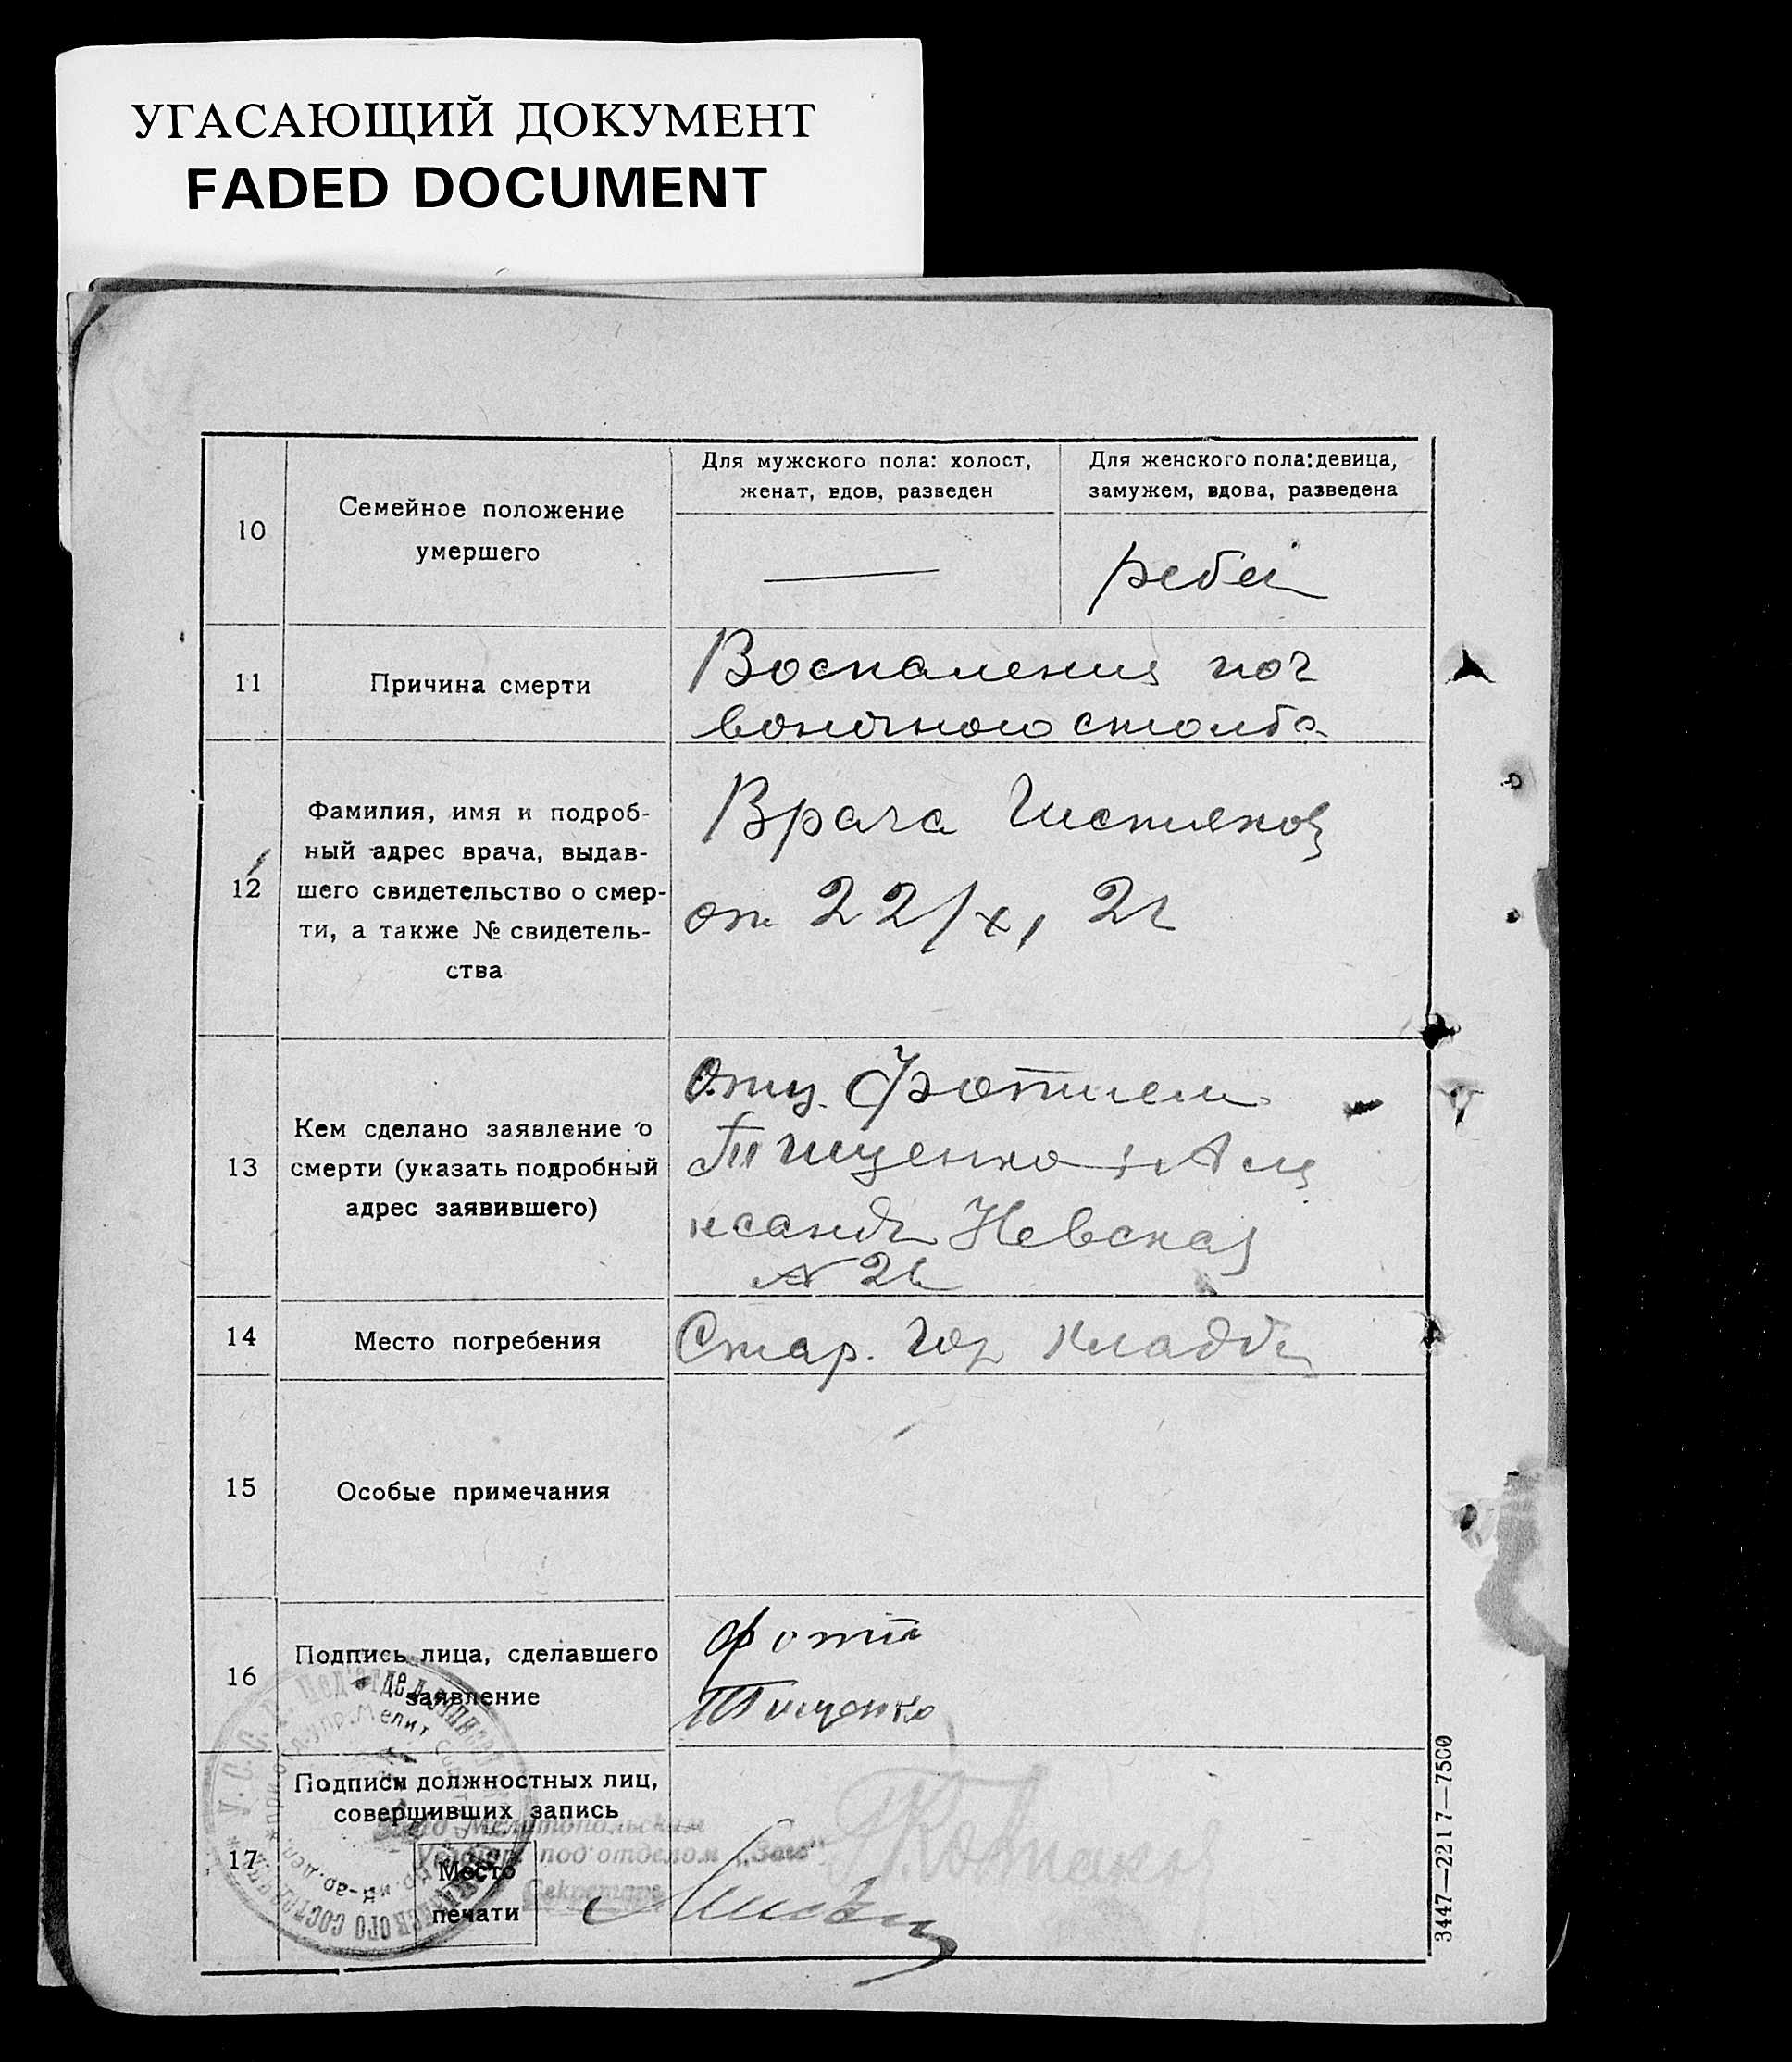 УГАСАЮЩИЙ ДОКУМЕНТ
FADED DOCUMENT
10
Семейное положение
умершего
Для мужского пола: холост,
женат, вдов, разведен
Для женского пола: девица,
замужем, вдова, разведена
—
11
Причина смерти
Воспаления поз
воночного столба
12
Фамилия, имя и подроб-
ный адрес врача, выдав-
шего свидетельство о смер-
ти, а также № свидетель-
ства
Врача Чистяков
от 22/X, 2
13
Кем сделано заявление о
смерти (указать подробный
адрес заявившего)
Отц. Фотием
Тищенко Але
ксанд Невская
№ 2
14
Место погребения
Стар. Гор Кладб
15
Особые примечания
16
Подпись лица, сделавшего
заявление
Фоти
Тищенко
17
Подписи должностных лиц,
совершивших запись
Место
печати
Завед Мелитопольским
под'отделом „Загс"
Секретарь
У.С.С.Р.
3447—2217—7500